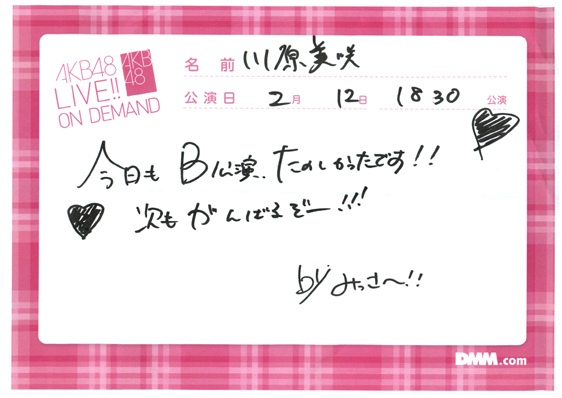 AKB48
LIVE!!
ON DEMAND
AKB
48
名 前 川原美咲
公演日 2月 12日 1830 公演
今日も B公演、たのしかったです!!
次も がんばるぞー!!!
by みっさ〜!!
DMM.com